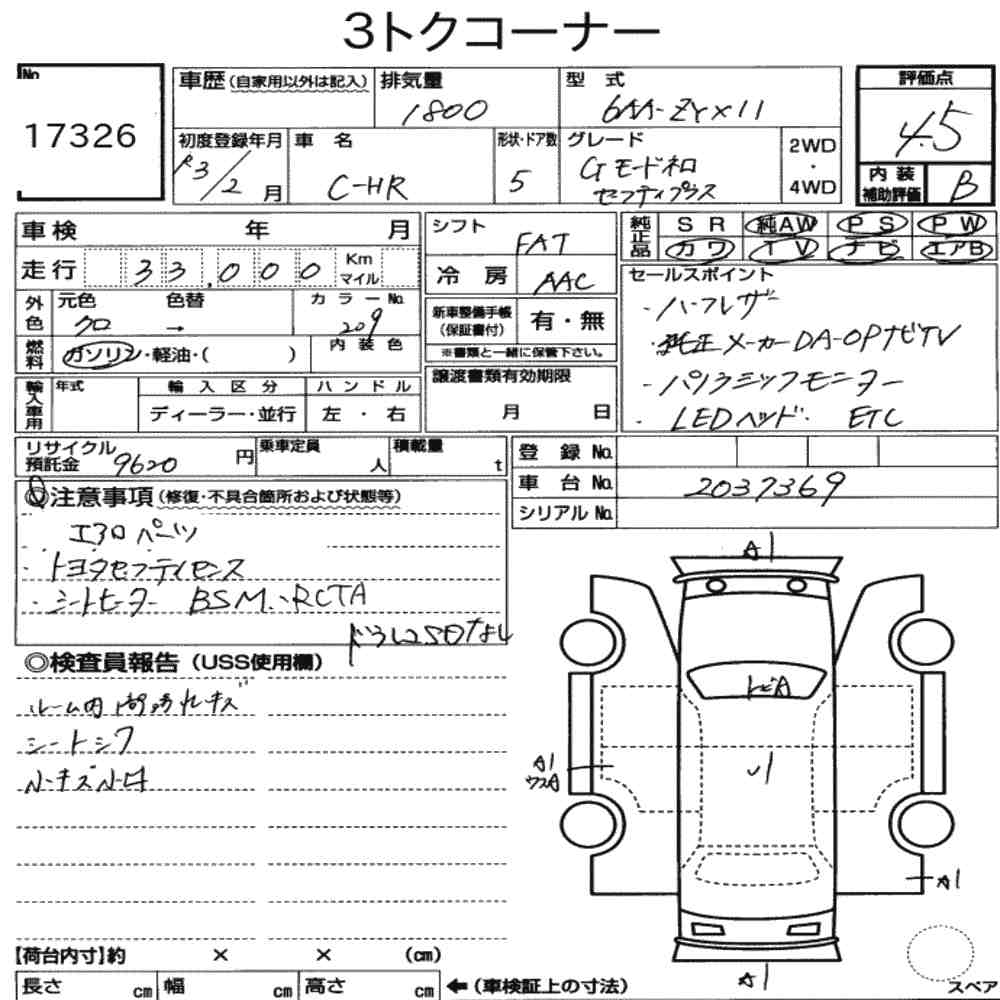 3トクコーナー
No
17326
車歴 (自家用以外は記入)
排気量
1800
型式
6AA-ZYX11
評価点
4.5
初度登録年月
R3/2月
車名
C-HR
形状・ドア数
5
グレード
Gモードネロ
セーフティプラス
2WD
・
4WD
内装
補助評価
B
車検 年 月
シフト
FAT
純正品
SR 純AW PS PW
カワ TV ナビ エアB
走行 33,000 Km マイル
冷房
AAC
セールスポイント
・ハーフレザー
・純正メーカーDA-OPナビTV
・パノラミックモニター
・LEDヘッド・ ETC
外色
元色 色替 カラーNo.
クロ → 209
新車整備手帳
(保証書付)
有・無
※書類と一緒に保管下さい。
燃料
ガソリン・軽油・( )
内装色
輸入車用
年式 輸入区分 ハンドル
ディーラー・並行 左・右
譲渡書類有効期限
月 日
リサイクル
預託金 9620 円
乗車定員 人
積載量 t
登録No.
車台No. 2037369
シリアルNo.
◎注意事項 (修復・不具合箇所および状態等)
・エアロパーツ
・トヨタセーフティセンス
・シートヒーター BSM・RCTA
ドラレコSDなし
◎検査員報告 (USS使用欄)
シートシワ
A1
トビA
A1
A1
A1
【荷台内寸】約 × × (cm)
長さ cm 幅 cm 高さ cm ←(車検証上の寸法)
スペア